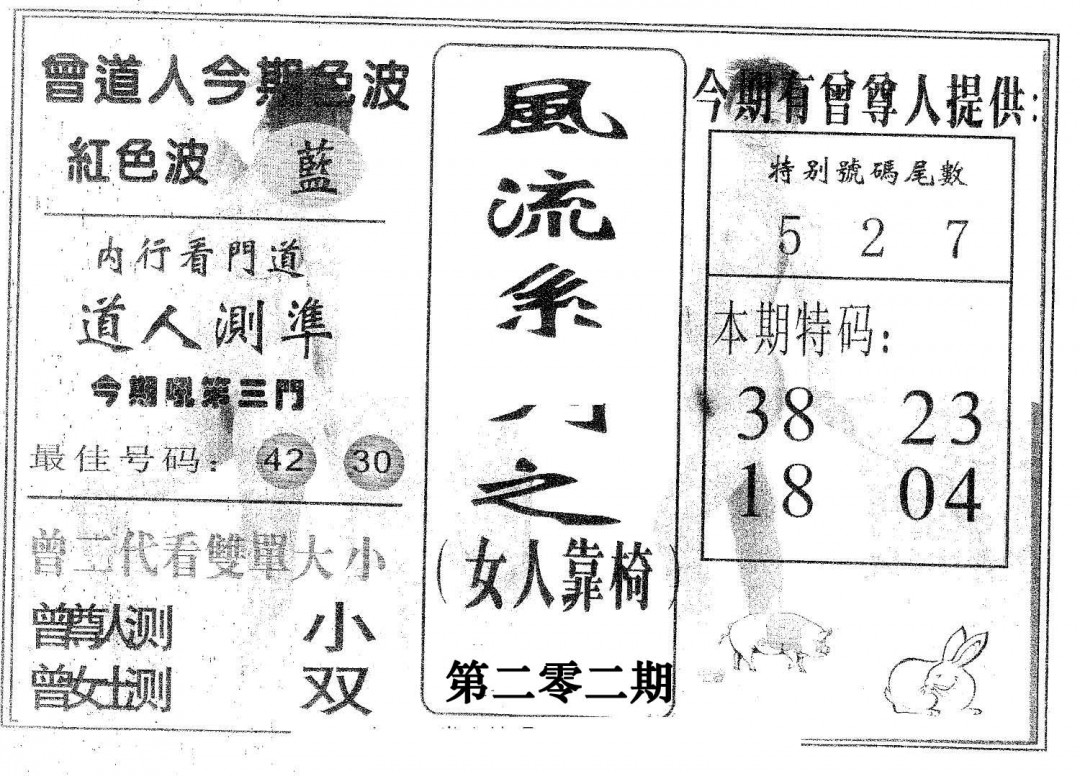 曾道人今期色波
紅色波 藍
内行看門道
道人測準
今期吼第三門
最佳号码： 42 30
曾二代看雙單大小
曾尊人测 小
曾女士测 双
風
流
系
之
（女人靠椅）
第二零二期
今期有曾尊人提供：
特别號碼尾數
5 2 7
本期特码：
38 23
18 04